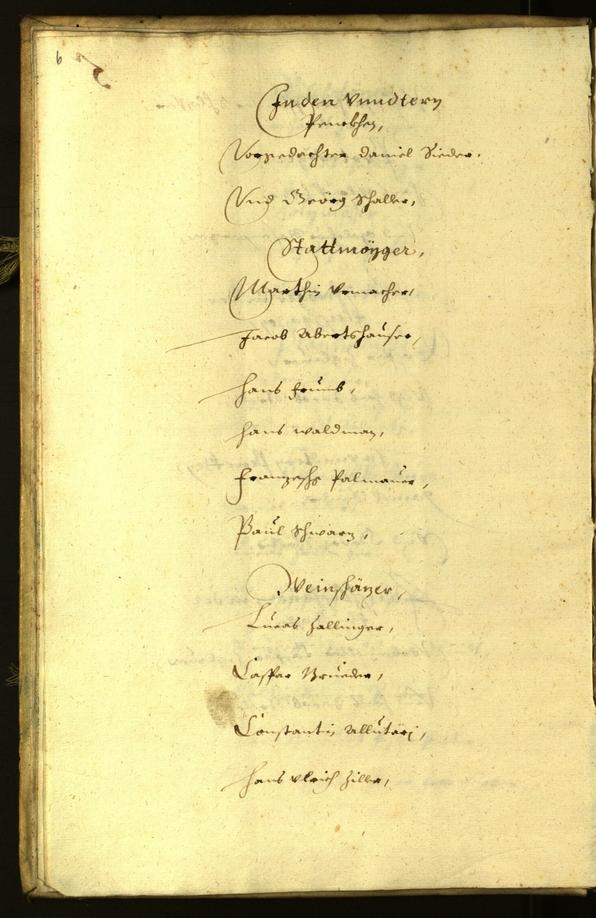 6
In den Vnndtern
Penckhen,
Vorgedachter Daniel Rieder,
Vnd Geörg Schaller,
Stattmözger,
Marthin Vrmacher,
Jacob Abertshauser,
Hans Frumb,
Hans Waldman,
Franzeschg Palmauer,
Paul Schwarz,
Weinschäzer,
Lucas Hallinger,
Caspar Brueder,
Constantin Allutärj,
Hans Vlrich Hiller,